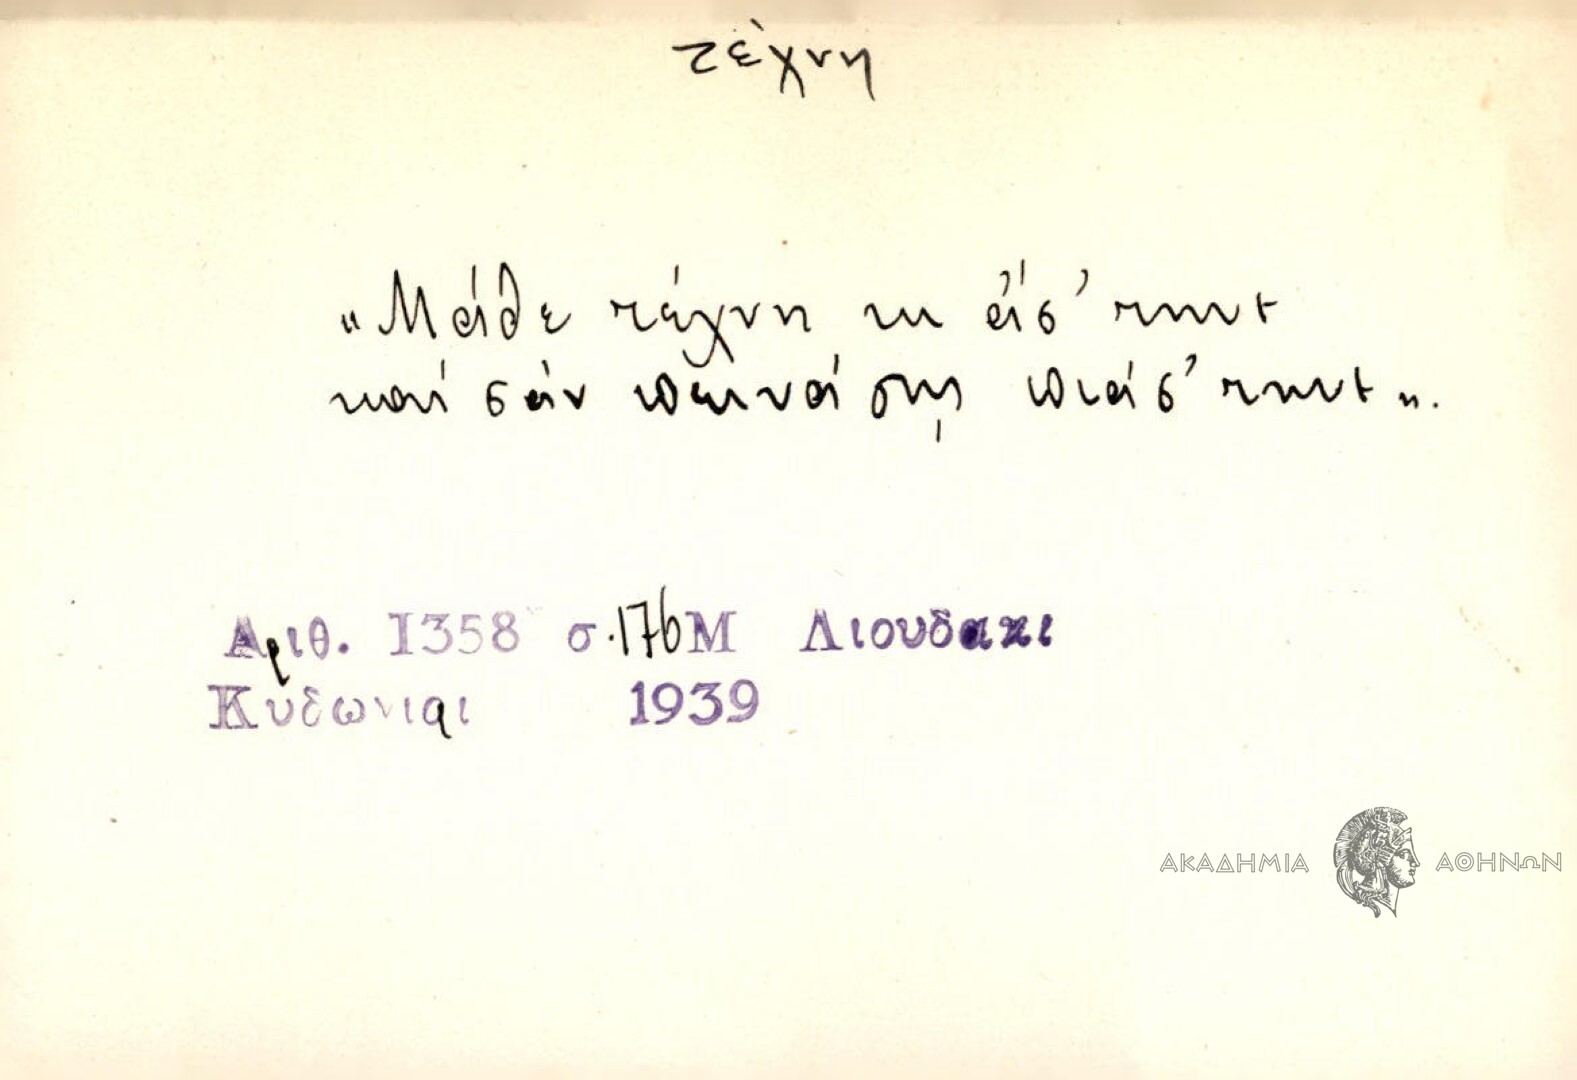 τέχνη
„Μάθε τέχνη κι ἄσ' τηνε
καί σάν πεινάσῃς πιάσ' τηνε„.
Αριθ. 1358 σ.176 Μ Λιουδακι
Κυδωνιαι 1939
ΑΚΑΔΗΜΙΑ ΑΘΗΝΩΝ